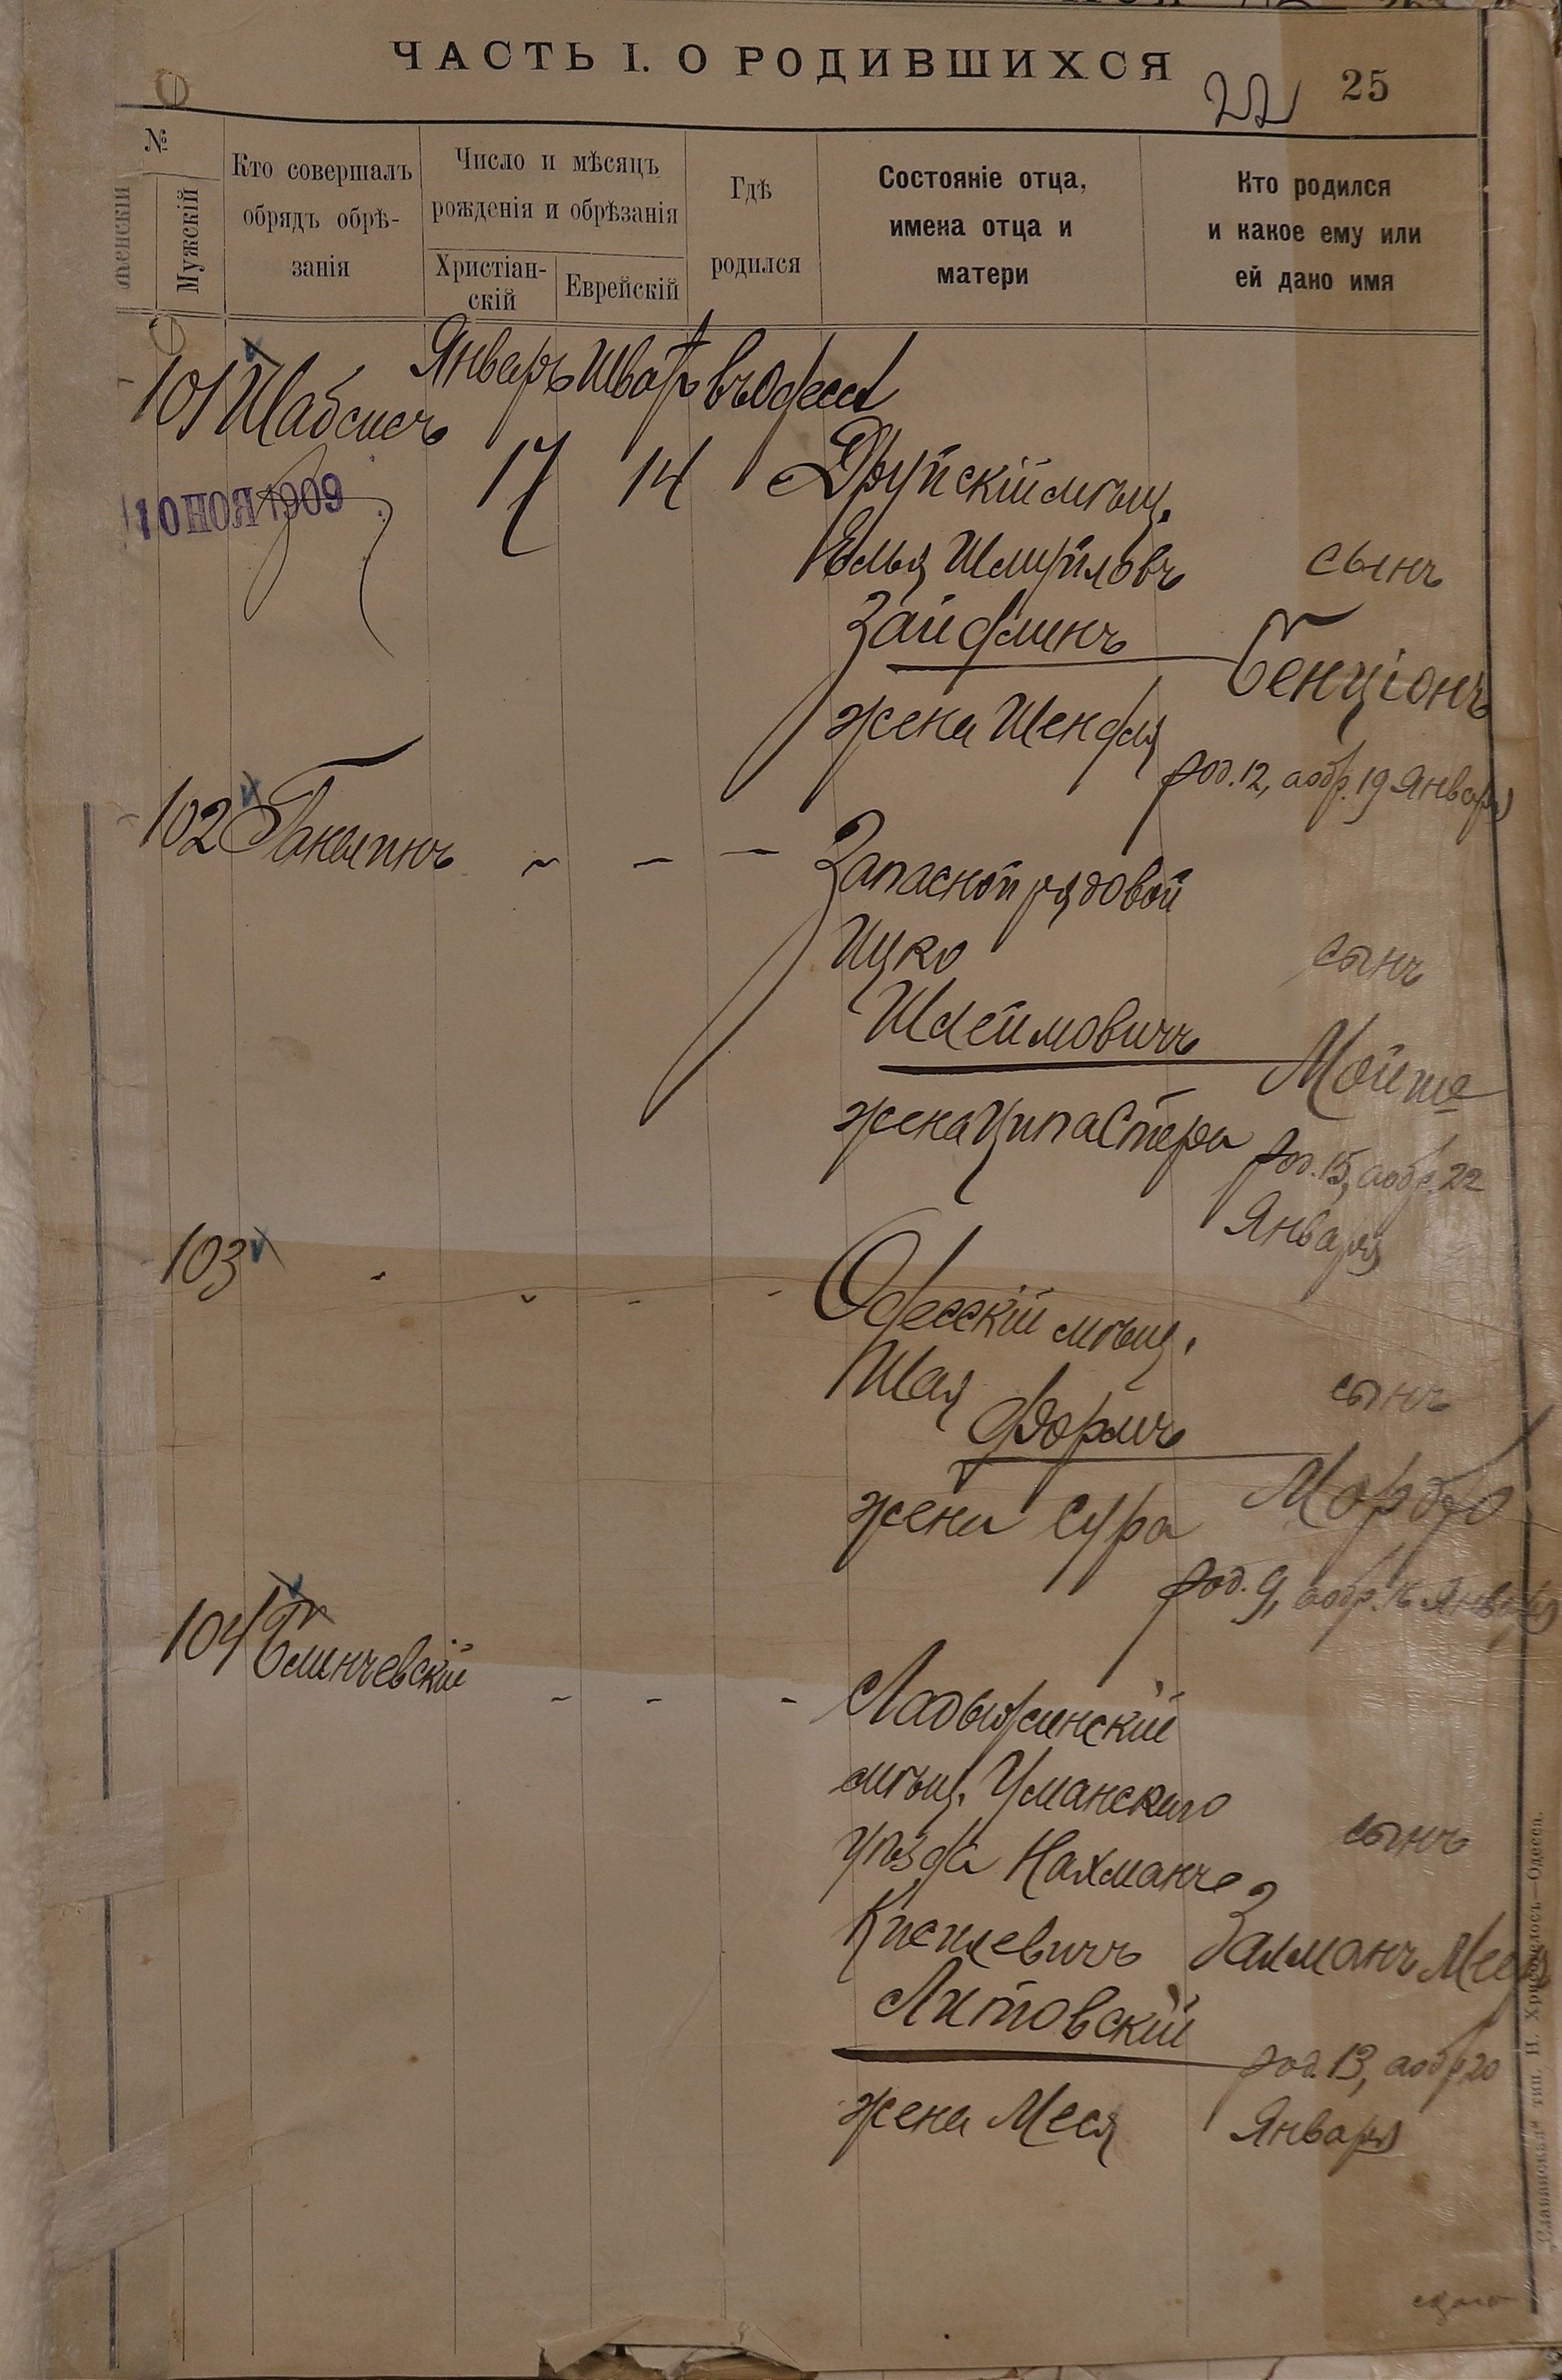 ЧАСТЬ I. О РОДИВШИХСЯ
22 25
№
Женскій
Мужскій
Кто совершалъ
обрядъ обрѣ-
занія
Число и мѣсяцъ
рожденія и обрѣзанія
Христіан-
скій
Еврейскій
Гдѣ
родился
Состояніе отца,
имена отца и
матери
Кто родился
и какое ему или
ей дано имя
Январь Шватъ въ Одессѣ
101 Шабсисъ
17 14
10 НОЯ 1909
Друйскій мѣщ.
Элья Шмуйловъ
Зайдлинъ
жена Шендля
сынъ
Бенціонъ
род. 12, а обр. 19 Января
102 - - -
Запасной рядовой
Ицко
Шлеймовичъ
жена Ципа Стера
сынъ
Мойше
род. 15, а обр. 22
Января
103 - - - -
Одесскій мѣщ.
Шая
Формъ
жена Сура
сынъ
Мордко
род. 9, а обр. 16 Января
104 Блинчевскій - - -
Ладыжинскій
мѣщ. Уманскаго
уѣзда Нахманъ
Кисилевичъ
Литовскій
жена Меся
сынъ
Залманъ
род. 13, а обр 20
Января
„Славянская“ тип. Н. Хрисогелосъ—Одесса.